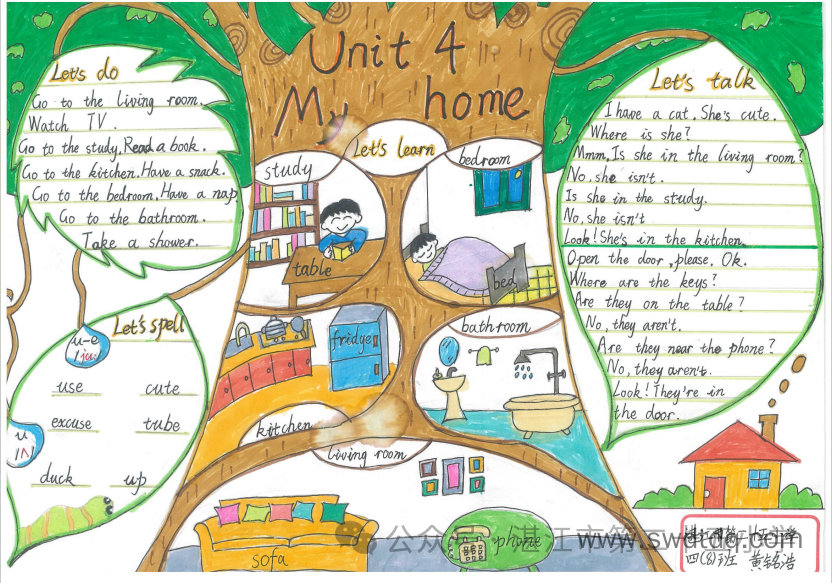 Unit 4
My home
Let's do
Go to the living room.
Watch TV.
Go to the study. Read a book.
Go to the kitchen. Have a snack.
Go to the bedroom. Have a nap
Go to the bathroom.
Take a shower.
Let's spell
u-e
/ju:/
use cute
excuse tube
u
/ʌ/
duck up
Let's learn
study
table
bedroom
bed
fridge
kitchen
bathroom
living room
sofa
phone
Let's talk
I have a cat. She's cute.
Where is she?
Mmm, Is she in the living room?
No, she isn't.
Is she in the study.
No, she isn't
Look! She's in the kitchen.
Open the door, please. Ok.
Where are the keys?
Are they on the table?
No, they aren't.
Are they near the phone?
No, they aren't.
Look! They're in
the door.
四(8)班 黄铭浩
公众号 湛江市第
www.swdtdq.com